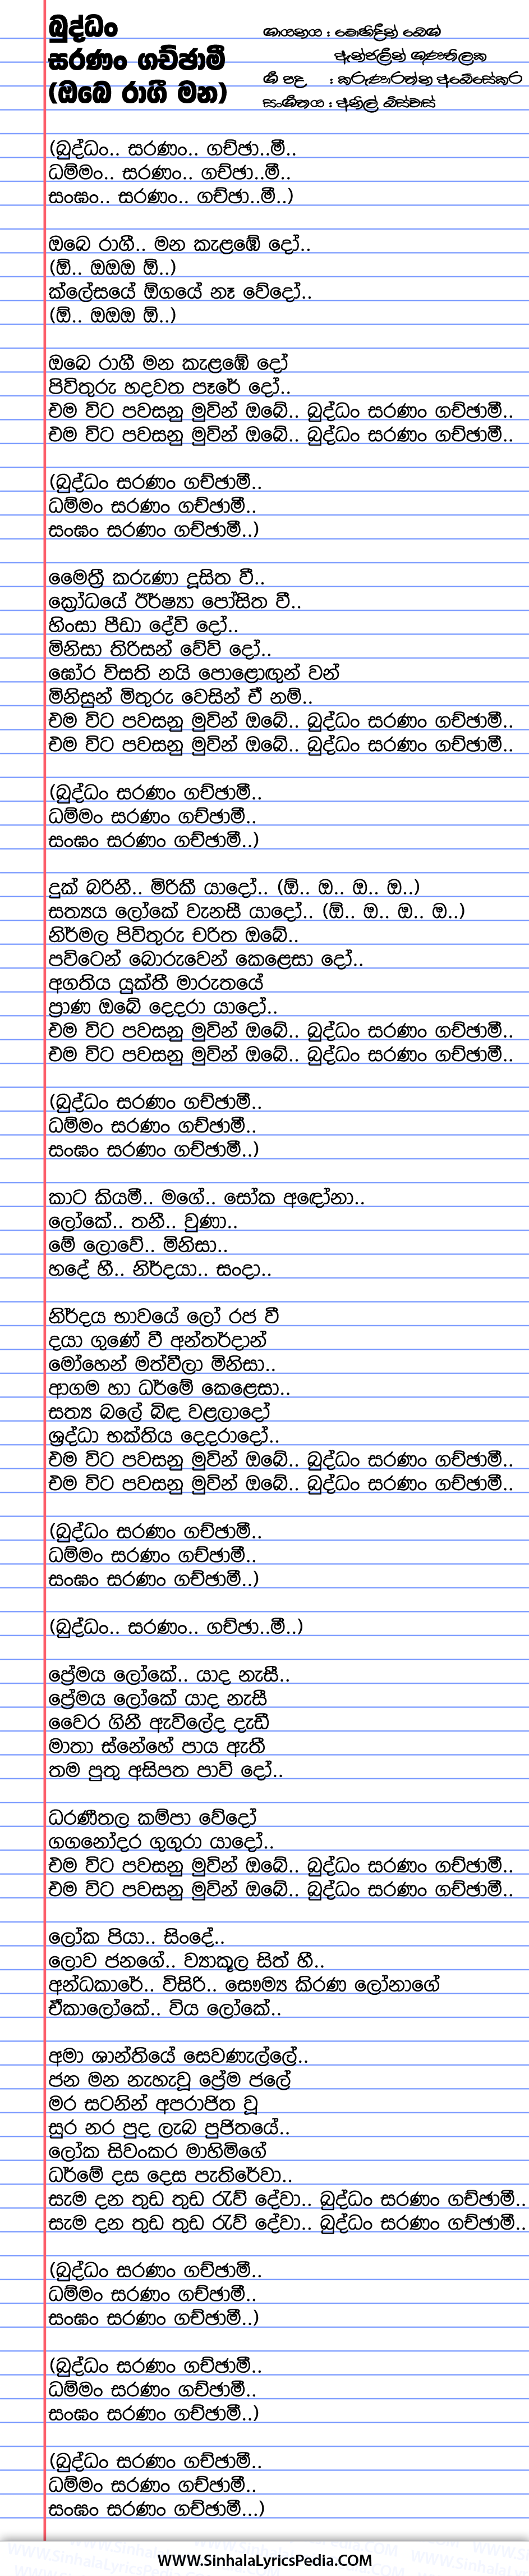 බුද්ධං
සරණං ගච්ඡාමී
(ඔබෙ රාගී මන)
ගායනය : මොහිදීන් බෙග්
ඇන්ජලීන් ගුණතිලක
ගී පද : කරුණාරත්න අබේසේකර
සංගීතය : අනිල් බිස්වාස්
(බුද්ධං.. සරණං.. ගච්ඡා..මී..
ධම්මං.. සරණං.. ගච්ඡා..මී..
සංඝං.. සරණං.. ගච්ඡා..මී..)
ඔබෙ රාගී.. මන කැළඹේ දෝ..
(ඕ.. ඔඔඔ ඕ..)
ක්ලේසයේ ඕගයේ නෑ වේදෝ..
(ඕ.. ඔඔඔ ඕ..)
ඔබෙ රාගී මන කැළඹේ දෝ
පිවිතුරු හදවත පෑරේ දෝ..
එම විට පවසනු මුවින් ඔබේ.. බුද්ධං සරණං ගච්ඡාමී..
එම විට පවසනු මුවින් ඔබේ.. බුද්ධං සරණං ගච්ඡාමී..
(බුද්ධං සරණං ගච්ඡාමී..
ධම්මං සරණං ගච්ඡාමී..
සංඝං සරණං ගච්ඡාමී..)
මෛත්‍රී කරුණා දූසිත වී..
ක්‍රෝධයේ ඊර්ෂ්‍යා පෝසිත වී..
හිංසා පීඩා දේවි දෝ..
මිනිසා තිරිසන් වේවි දෝ..
ඝෝර විසති නයි පොළොඟුන් වන්
මිනිසුන් මිතුරු වෙසින් ඒ නම්..
එම විට පවසනු මුවින් ඔබේ.. බුද්ධං සරණං ගච්ඡාමී..
එම විට පවසනු මුවින් ඔබේ.. බුද්ධං සරණං ගච්ඡාමී..
(බුද්ධං සරණං ගච්ඡාමී..
ධම්මං සරණං ගච්ඡාමී..
සංඝං සරණං ගච්ඡාමී..)
දුක් බරිනී.. මිරිකී යාදෝ.. (ඕ.. ඔ.. ඔ.. ඔ..)
සත්‍යය ලෝකේ වැනසී යාදෝ.. (ඕ.. ඔ.. ඔ.. ඔ..)
නිර්මල පිවිතුරු චරිත ඔබේ..
පවිටෙන් බොරුවෙන් කෙළෙසා දෝ..
අගතිය යුක්තී මාරුතයේ
ප්‍රාණ ඔබේ දෙදරා යාදෝ..
එම විට පවසනු මුවින් ඔබේ.. බුද්ධං සරණං ගච්ඡාමී..
එම විට පවසනු මුවින් ඔබේ.. බුද්ධං සරණං ගච්ඡාමී..
(බුද්ධං සරණං ගච්ඡාමී..
ධම්මං සරණං ගච්ඡාමී..
සංඝං සරණං ගච්ඡාමී..)
කාට කියමී.. මගේ.. සෝක අඳෝනා..
ලෝකේ.. තනී.. වුණා..
මේ ලොවේ.. මිනිසා..
හදේ හී.. නිර්දයා.. සංදා..
නිර්දය භාවයේ ලෝ රජ වී
දයා ගුණේ වී අන්තර්දාන්
මෝහෙන් මත්වීලා මිනිසා..
ආගම හා ධර්මේ කෙළෙසා..
සත්‍ය බලේ බිඳ වළලාදෝ
ශ්‍රද්ධා භක්තිය දෙදරාදෝ..
එම විට පවසනු මුවින් ඔබේ.. බුද්ධං සරණං ගච්ඡාමී..
එම විට පවසනු මුවින් ඔබේ.. බුද්ධං සරණං ගච්ඡාමී..
(බුද්ධං සරණං ගච්ඡාමී..
ධම්මං සරණං ගච්ඡාමී..
සංඝං සරණං ගච්ඡාමී..)
(බුද්ධං.. සරණං.. ගච්ඡා..මී..)
ප්‍රේමය ලෝකේ.. යාද නැසී..
ප්‍රේමය ලෝකේ යාද නැසී
වෛර ගිනී ඇවිලේද දැඩී
මාතා ස්නේහේ පාය ඇතී
තම පුතු අසිපත පාවි දෝ..
ධරණීතල කම්පා වේදෝ
ගගනෝදර ගුගුරා යාදෝ..
එම විට පවසනු මුවින් ඔබේ.. බුද්ධං සරණං ගච්ඡාමී..
එම විට පවසනු මුවින් ඔබේ.. බුද්ධං සරණං ගච්ඡාමී..
ලෝක පියා.. සිංදේ..
ලොව ජනගේ.. ව්‍යාකූල සිත් හී..
අන්ධකාරේ.. විසිරි.. සෞම්‍ය කිරණ ලෝනාගේ
ඒකාලෝකේ.. විය ලෝකේ..
අමා ශාන්තියේ සෙවණැල්ලේ..
ජන මන නැහැවූ ප්‍රේම ජලේ
මර සටනින් අපරාජිත වූ
සුර නර පුද ලැබ පුජිතයේ..
ලෝක සිවංකර මාහිමිගේ
ධර්මේ දස දෙස පැතිරේවා..
සැම දන තුඩ තුඩ රැව් දේවා.. බුද්ධං සරණං ගච්ඡාමී..
සැම දන තුඩ තුඩ රැව් දේවා.. බුද්ධං සරණං ගච්ඡාමී..
(බුද්ධං සරණං ගච්ඡාමී..
ධම්මං සරණං ගච්ඡාමී..
සංඝං සරණං ගච්ඡාමී..)
(බුද්ධං සරණං ගච්ඡාමී..
ධම්මං සරණං ගච්ඡාමී..
සංඝං සරණං ගච්ඡාමී..)
(බුද්ධං සරණං ගච්ඡාමී..
ධම්මං සරණං ගච්ඡාමී..
සංඝං සරණං ගච්ඡාමී...)
WWW.SinhalaLyricsPedia.COM